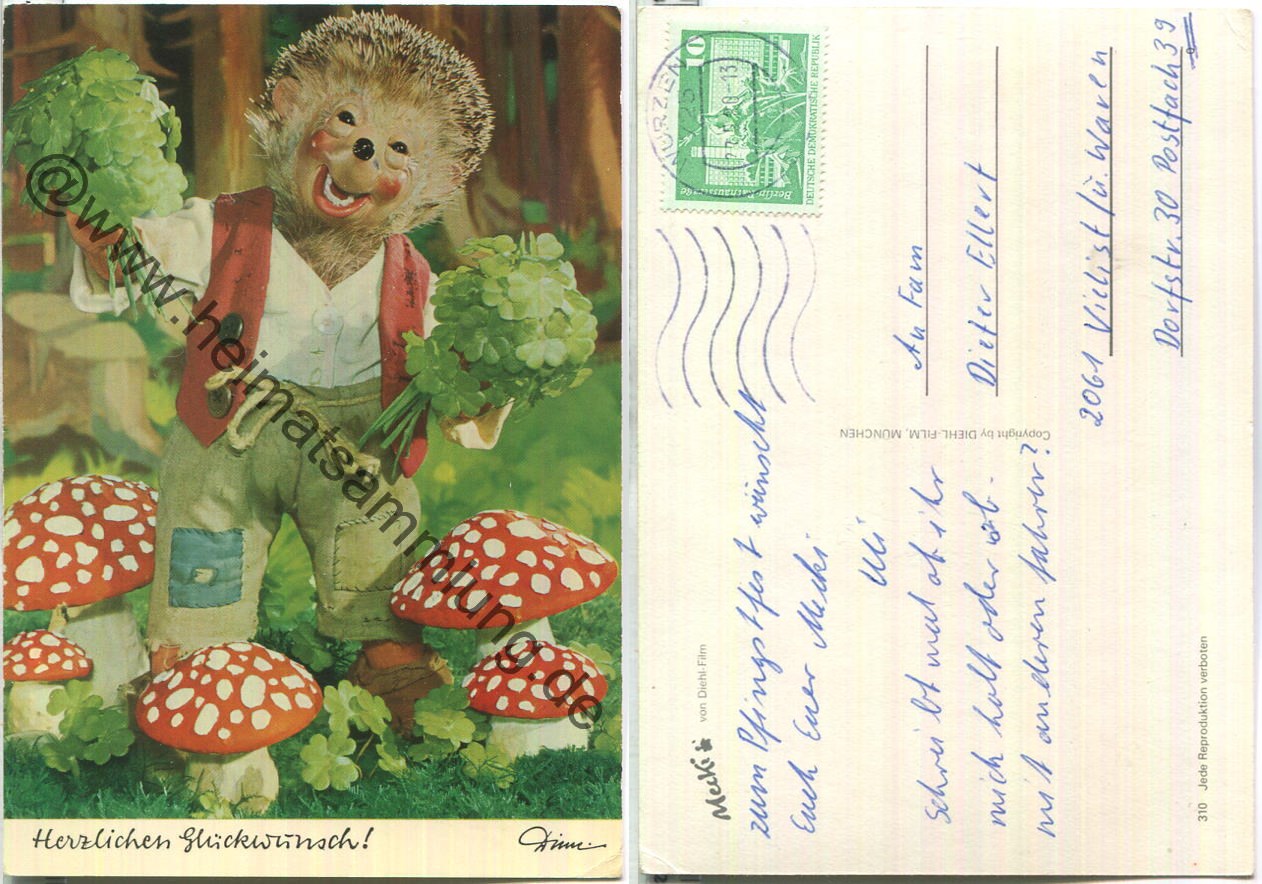 Herzlichen Glückwunsch!
Diehl
@www.heimatsammlung.de
Mecki
von Diehl-Film
zum Pfingstfest wünscht
Euch Euer Mecki
Uli
Schreibt mal ob ihr
mich holt oder ob
mit anderen fahren?
Copyright by DIEHL-FILM, MÜNCHEN
310 Jede Reproduktion verboten
WURZEN
10
Berlin-Rathausstraße
DEUTSCHE DEMOKRATISCHE REPUBLIK
An Fam
Dieter Ellert
2061 Vielist ü. Waren
Dorfstr. 30 Postfach 39